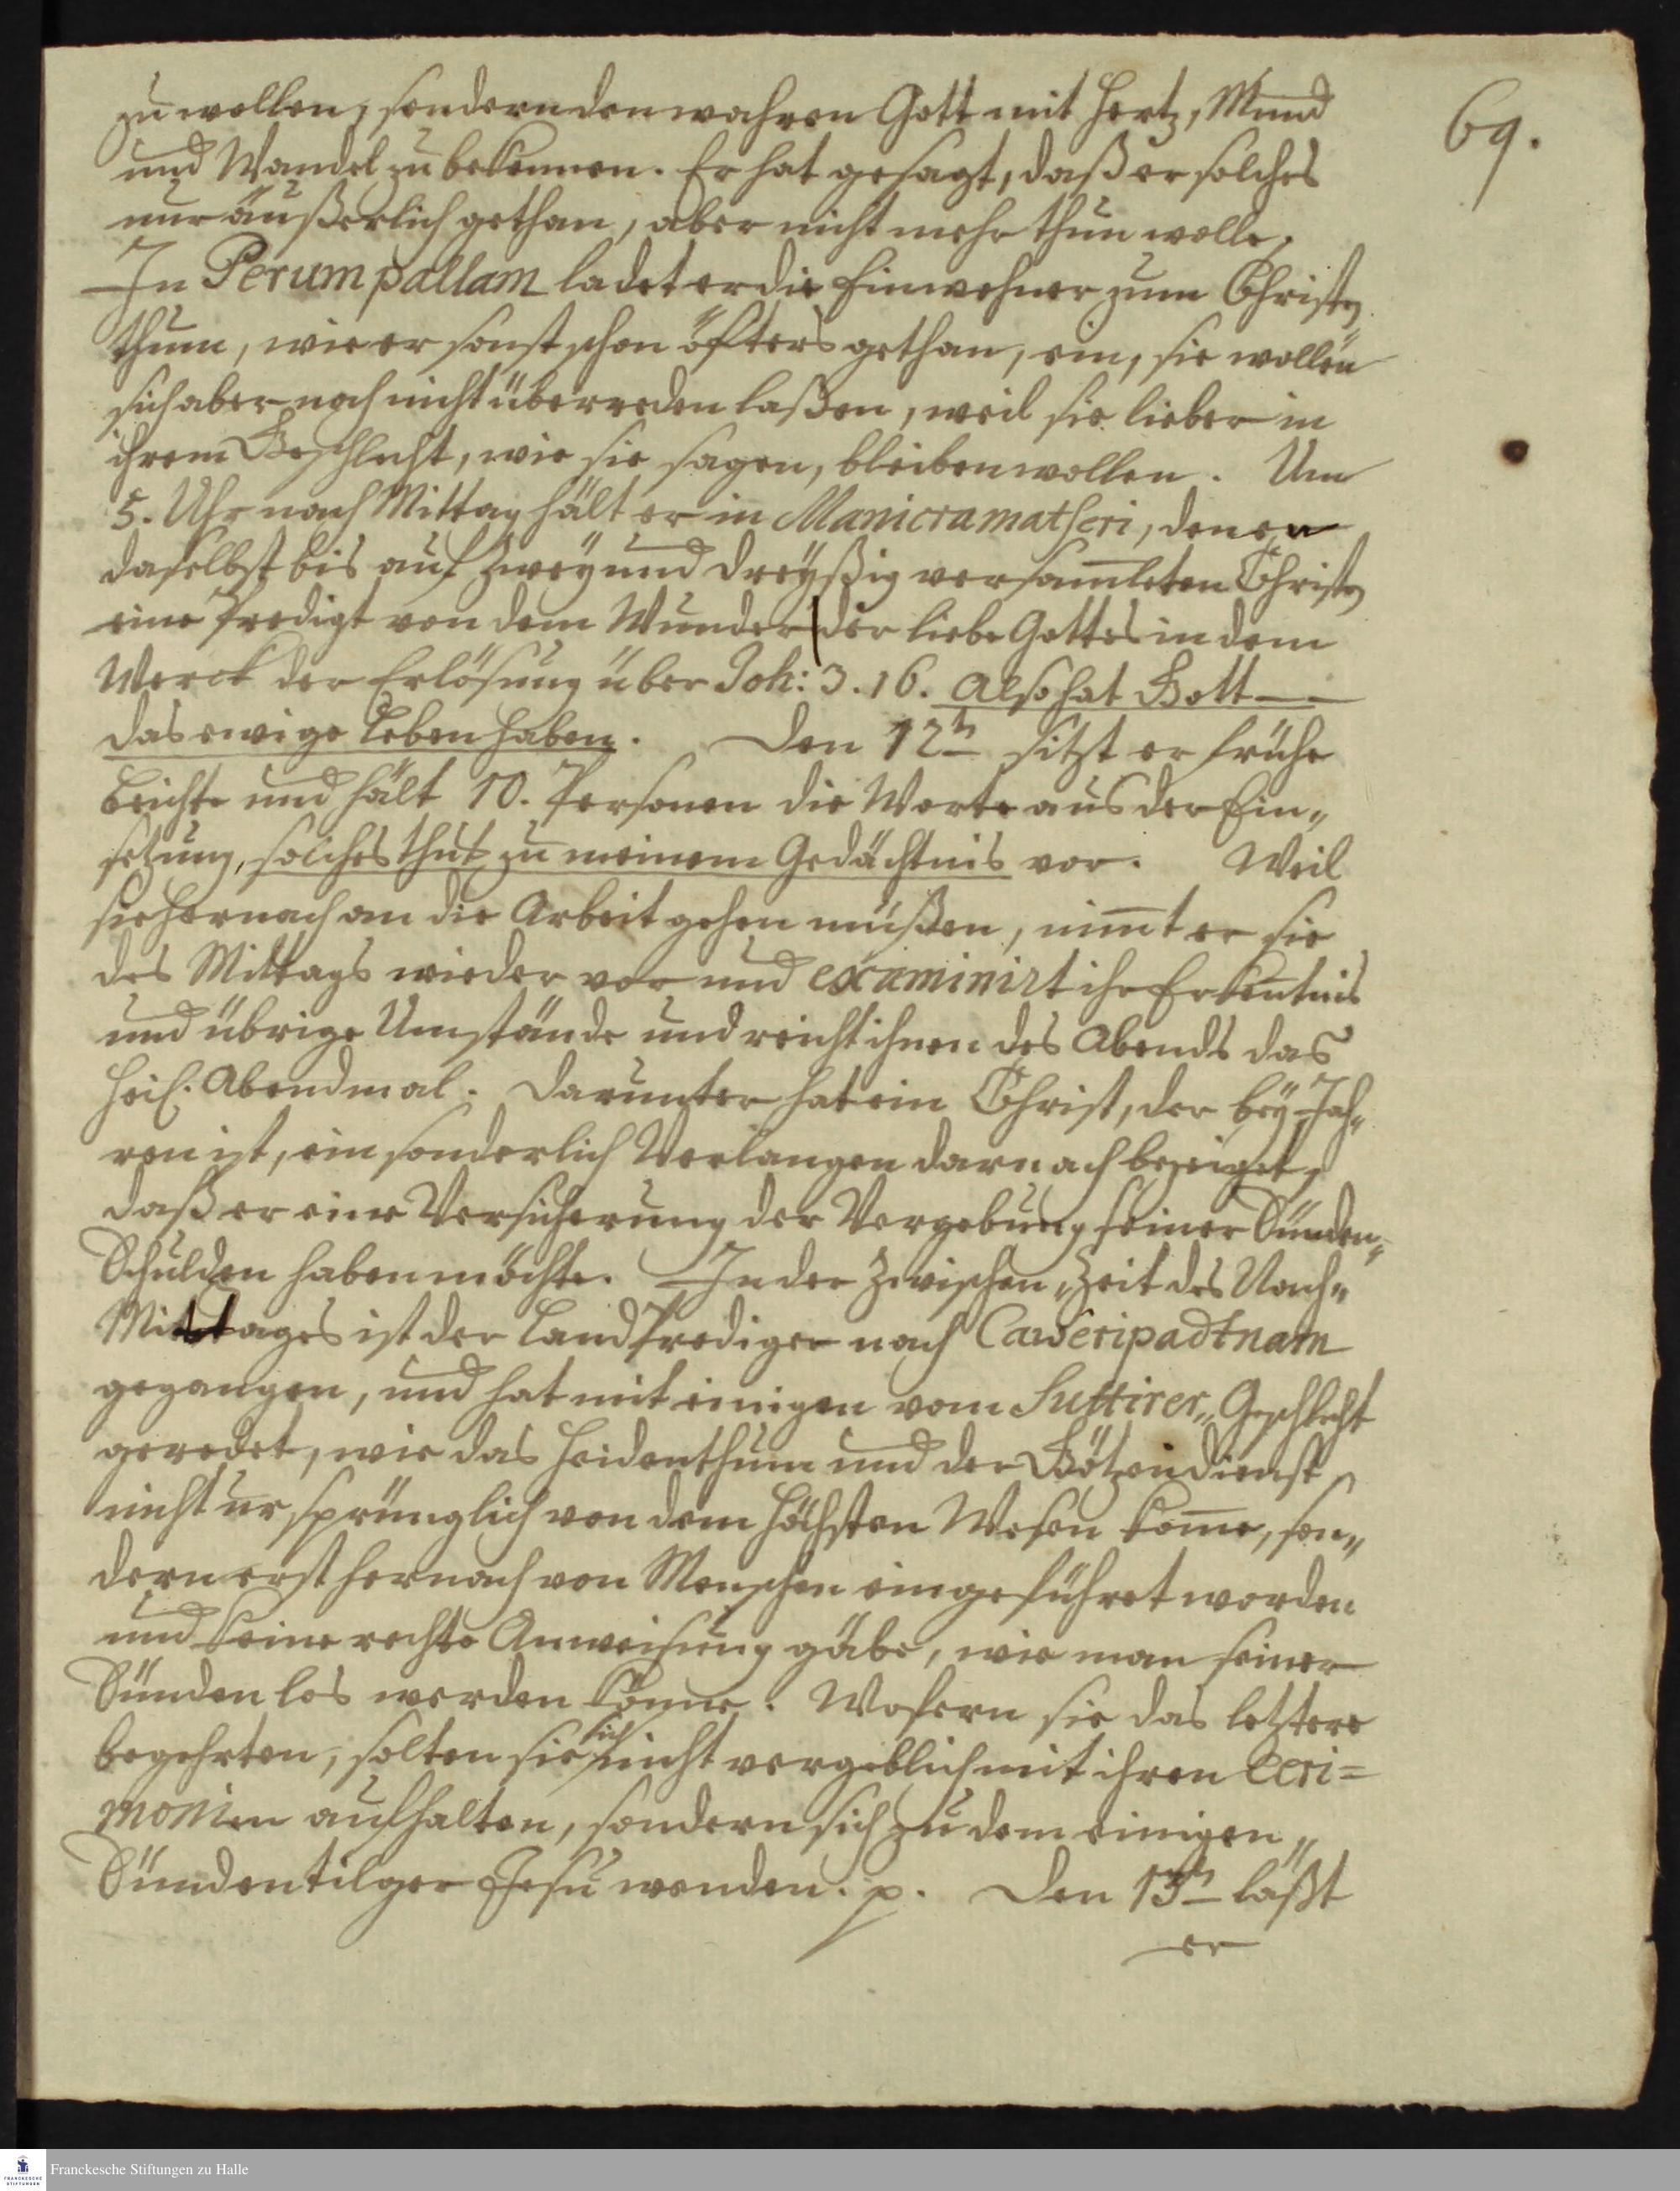 69.
zu wollen, sondern den wahren Gott mit Hertz, Mund
und Wandel zu bekennen. Er hat gesagt, daß er solches
nur äußerlich gethan, aber nicht mehr thun wolle.
In Perumpallam ladet er die Einwohner zum Christen
thum, wie er sonst schon öfters gethan, ein, sie wollen
sich aber noch nicht überreden laßen, weil sie lieber in
ihrem Geschlecht, wie sie sagen, bleiben wollen. Um
5. Uhr nach Mittag hält er in Manicramatheri, denen
daselbst bis auf zwey und dreyßig versam̄leten Christen
eine Predigt von dem Wunder der liebe Gottes in dem
Werck der Erlösung über Joh: 3. 16. Also hat Gott —
das ewige Leben haben. Den 12n sitzt er frühe
Beichte und hält 10. Personen die Worte aus der Ein„
setzung, solches thut zu meinem Gedächtnis vor. Weil
sie hernach an die Arbeit gehen müßen, nim̄t er sie
des Mittags wieder vor und examinirt ihr Erkentnis
und übrige Umstände und reicht ihnen des Abends das
Heil. Abendmal. Darunter hat ein Christ, der bey Jah„
ren ist, ein sonderlich Verlangen darnach bezeiget,
daß er eine Versicherung der Vergebung seiner Sünden„
Schulden haben möchte. In der Zwischen„Zeit des Nach„
Mittages ist der Land Prediger nach Caweripadtnam
gegangen, und hat mit einigen vom Suttirer„Geschlecht
geredet, wie das Heidenthum und der Götzendienst
nicht ursprünglich von dem Höchsten Wesen kom̄e, son„
dern erst hernach von Menschen eingeführet worden
und keine rechte Anweisung gäbe, wie man seiner
Sünden los werden könne. Wofern sie das letztere
begehrten, solten sie sich nicht vergeblich mit ihren Ceri=
monien aufhalten, sondern sich zu dem einigen„
Sündentilger Jesu wenden. p. Den 13n läßt
er
Franckesche Stiftungen zu Halle
FRANCKESCHE
STIFTUNGEN